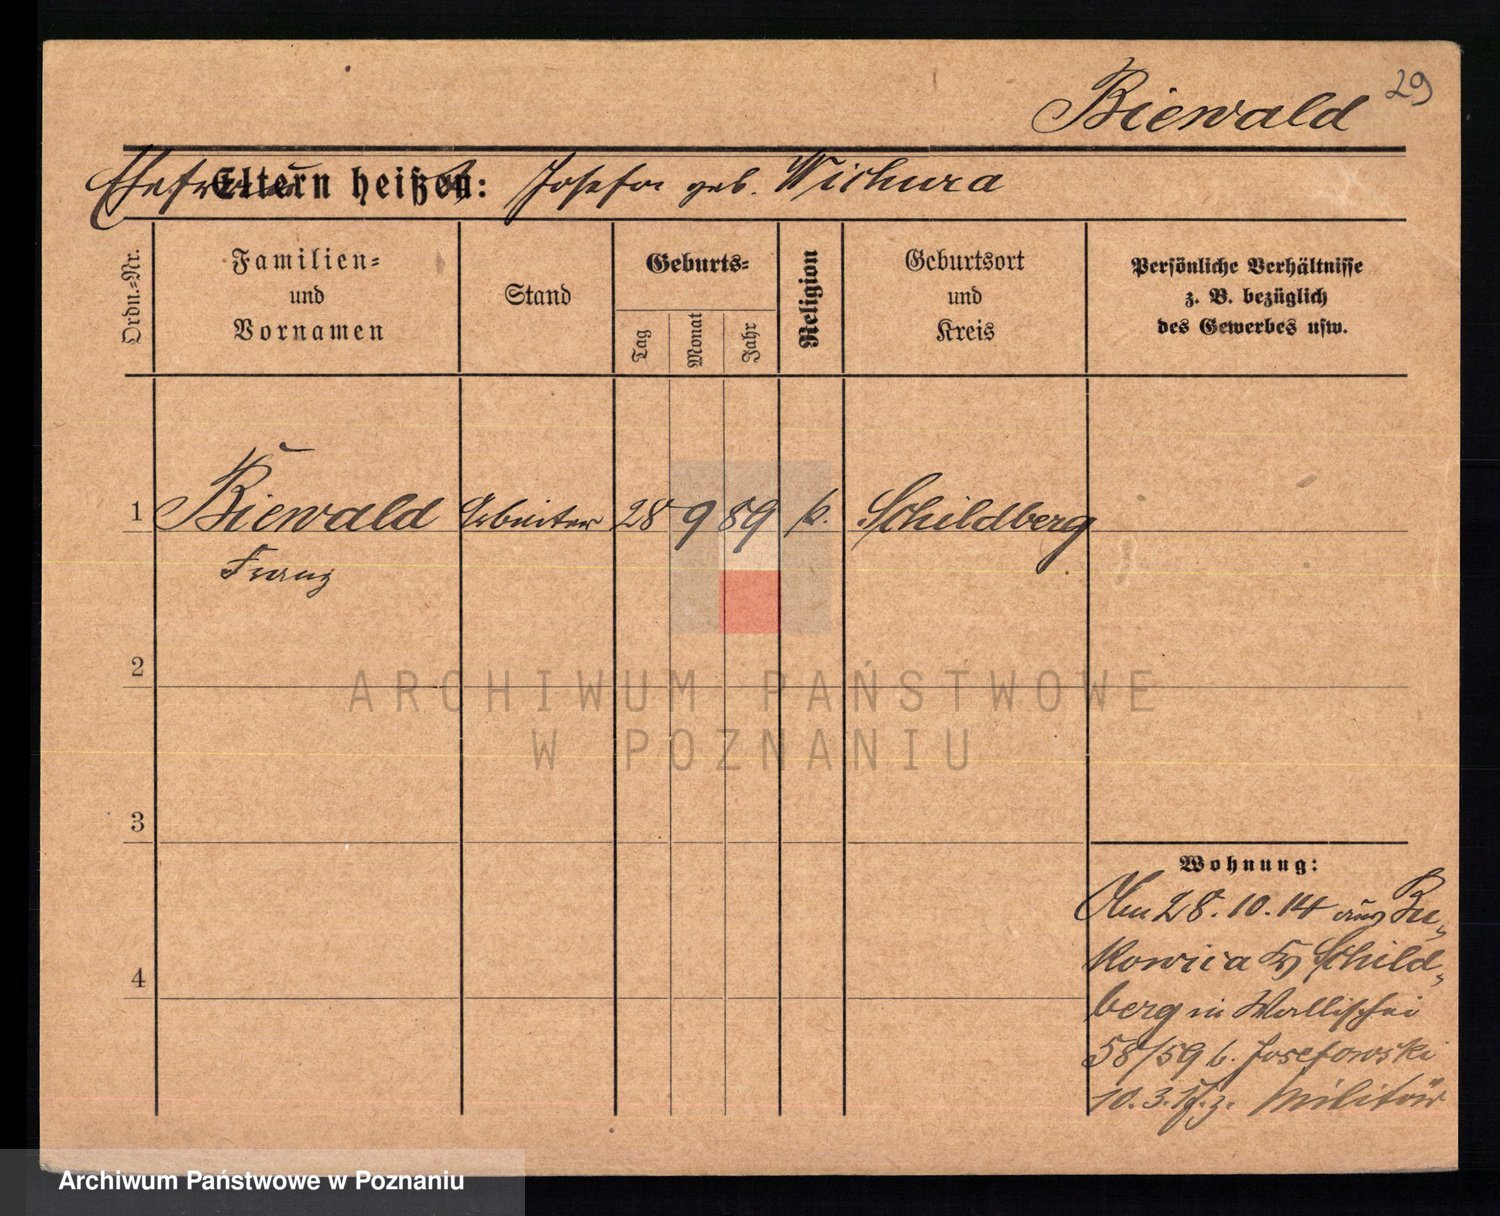 29
Biewald
Ehefrau Eltern heißen: Josefa geb. Wichura
Ordn.-Nr.
Familien-
und
Vornamen
Stand
Geburts-
Tag
Monat
Jahr
Religion
Geburtsort
und
Kreis
Persönliche Verhältnisse
z. B. bezüglich
des Gewerbes usw.
1 Biewald Arbeiter 28 9 89 k. Schildberg
Franz
2
ARCHIWUM PAŃSTWOWE
W POZNANIU
3
Wohnung:
Am 28.10.14 aus Bu-
4
kowica Kr Schild-
berg in Wallischei
58/59 b. Josefowski
10.3.17. z. Militär
Archiwum Państwowe w Poznaniu